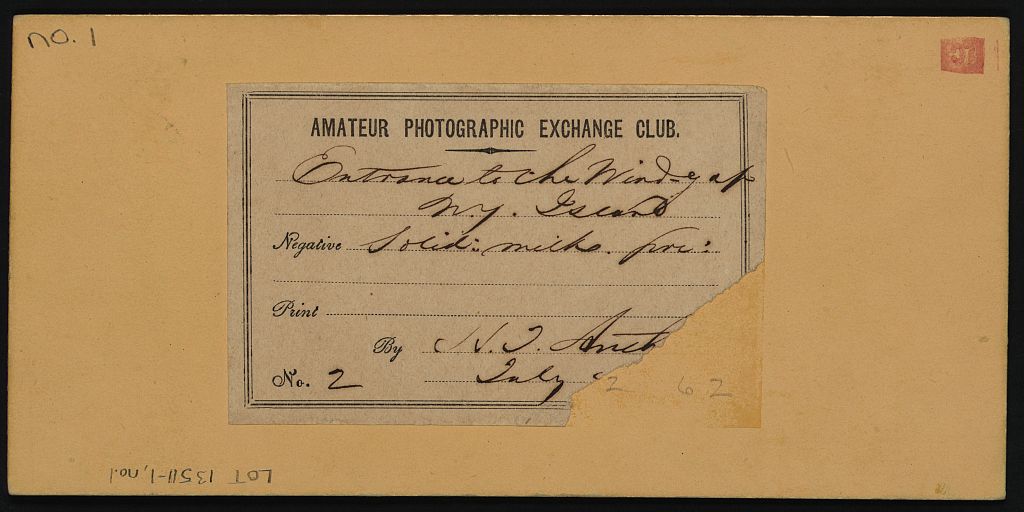 no. 1
AMATEUR PHOTOGRAPHIC EXCHANGE CLUB.
Entrance to the Wind-gap
N.Y. Island
Negative Solid: milk. pre:
Print
By H. T. Anth
No. 2 July
2 62
LOT 13511-1, no.1